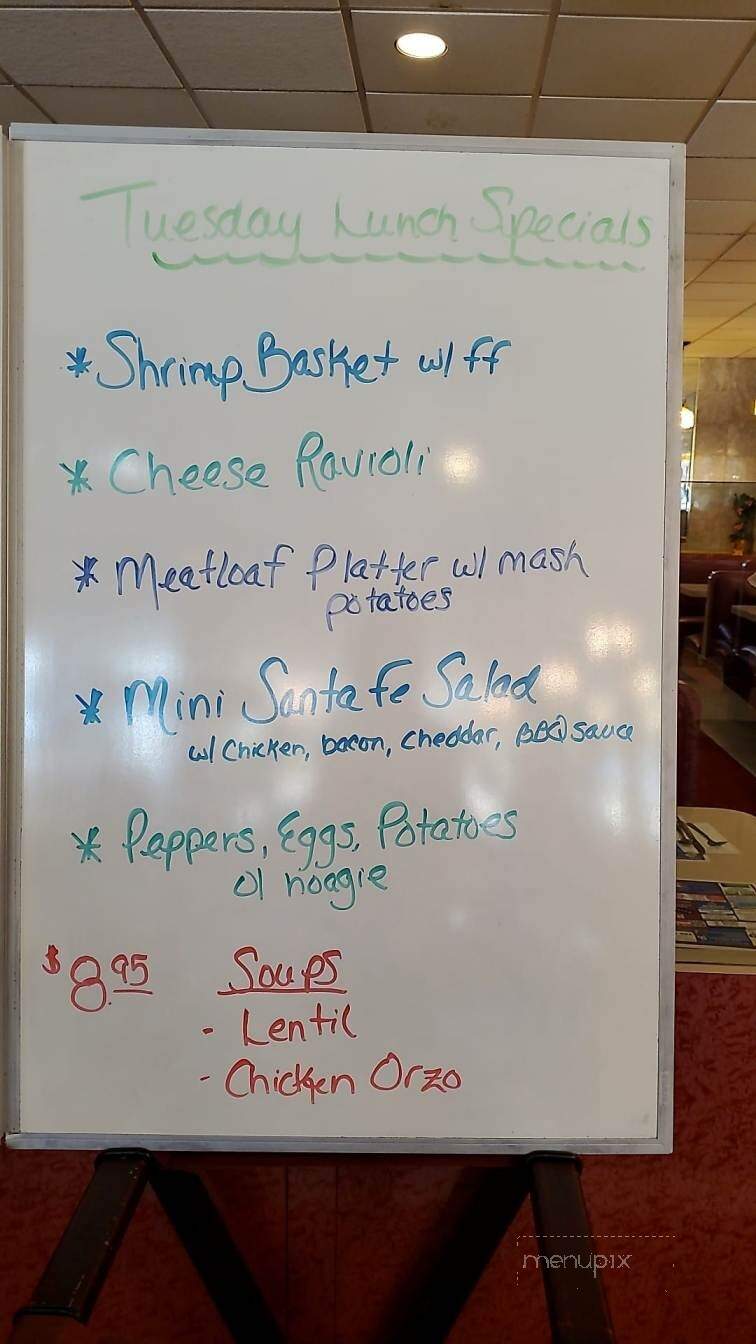 Tuesday Lunch Specials
* Shrimp Basket w/ ff
* Cheese Ravioli
* Meatloaf Platter w/ mash
potatoes
* Mini Santa Fe Salad
w/ Chicken, bacon, cheddar, BBQ sauce
* Peppers, Eggs, Potatoes
o/ hoagie
$8.95 Soups
- Lentil
- Chicken Orzo
menupix